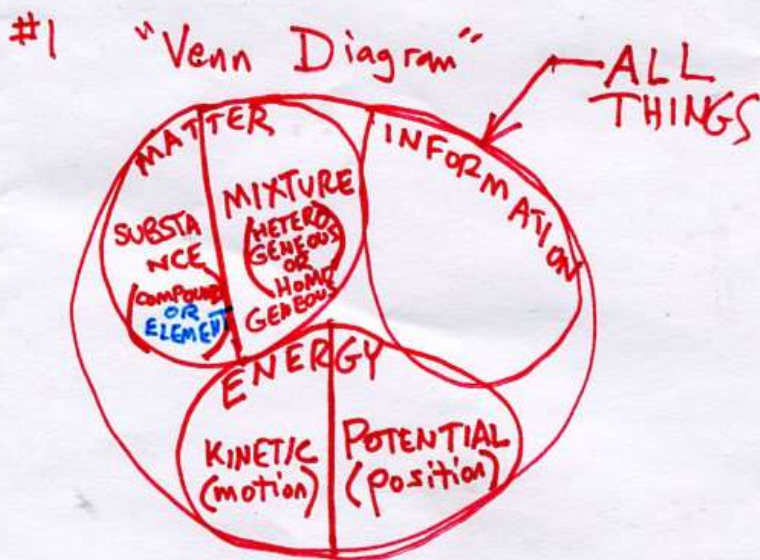 #1 "Venn Diagram"
ALL
THINGS
MATTER
INFORMATION
SUBSTA
NCE
(COMPOUND
OR
ELEMENT)
MIXTURE
(HETERO
GENEOUS
OR
HOMO
GENEOUS)
ENERGY
KINETIC
(motion)
POTENTIAL
(position)